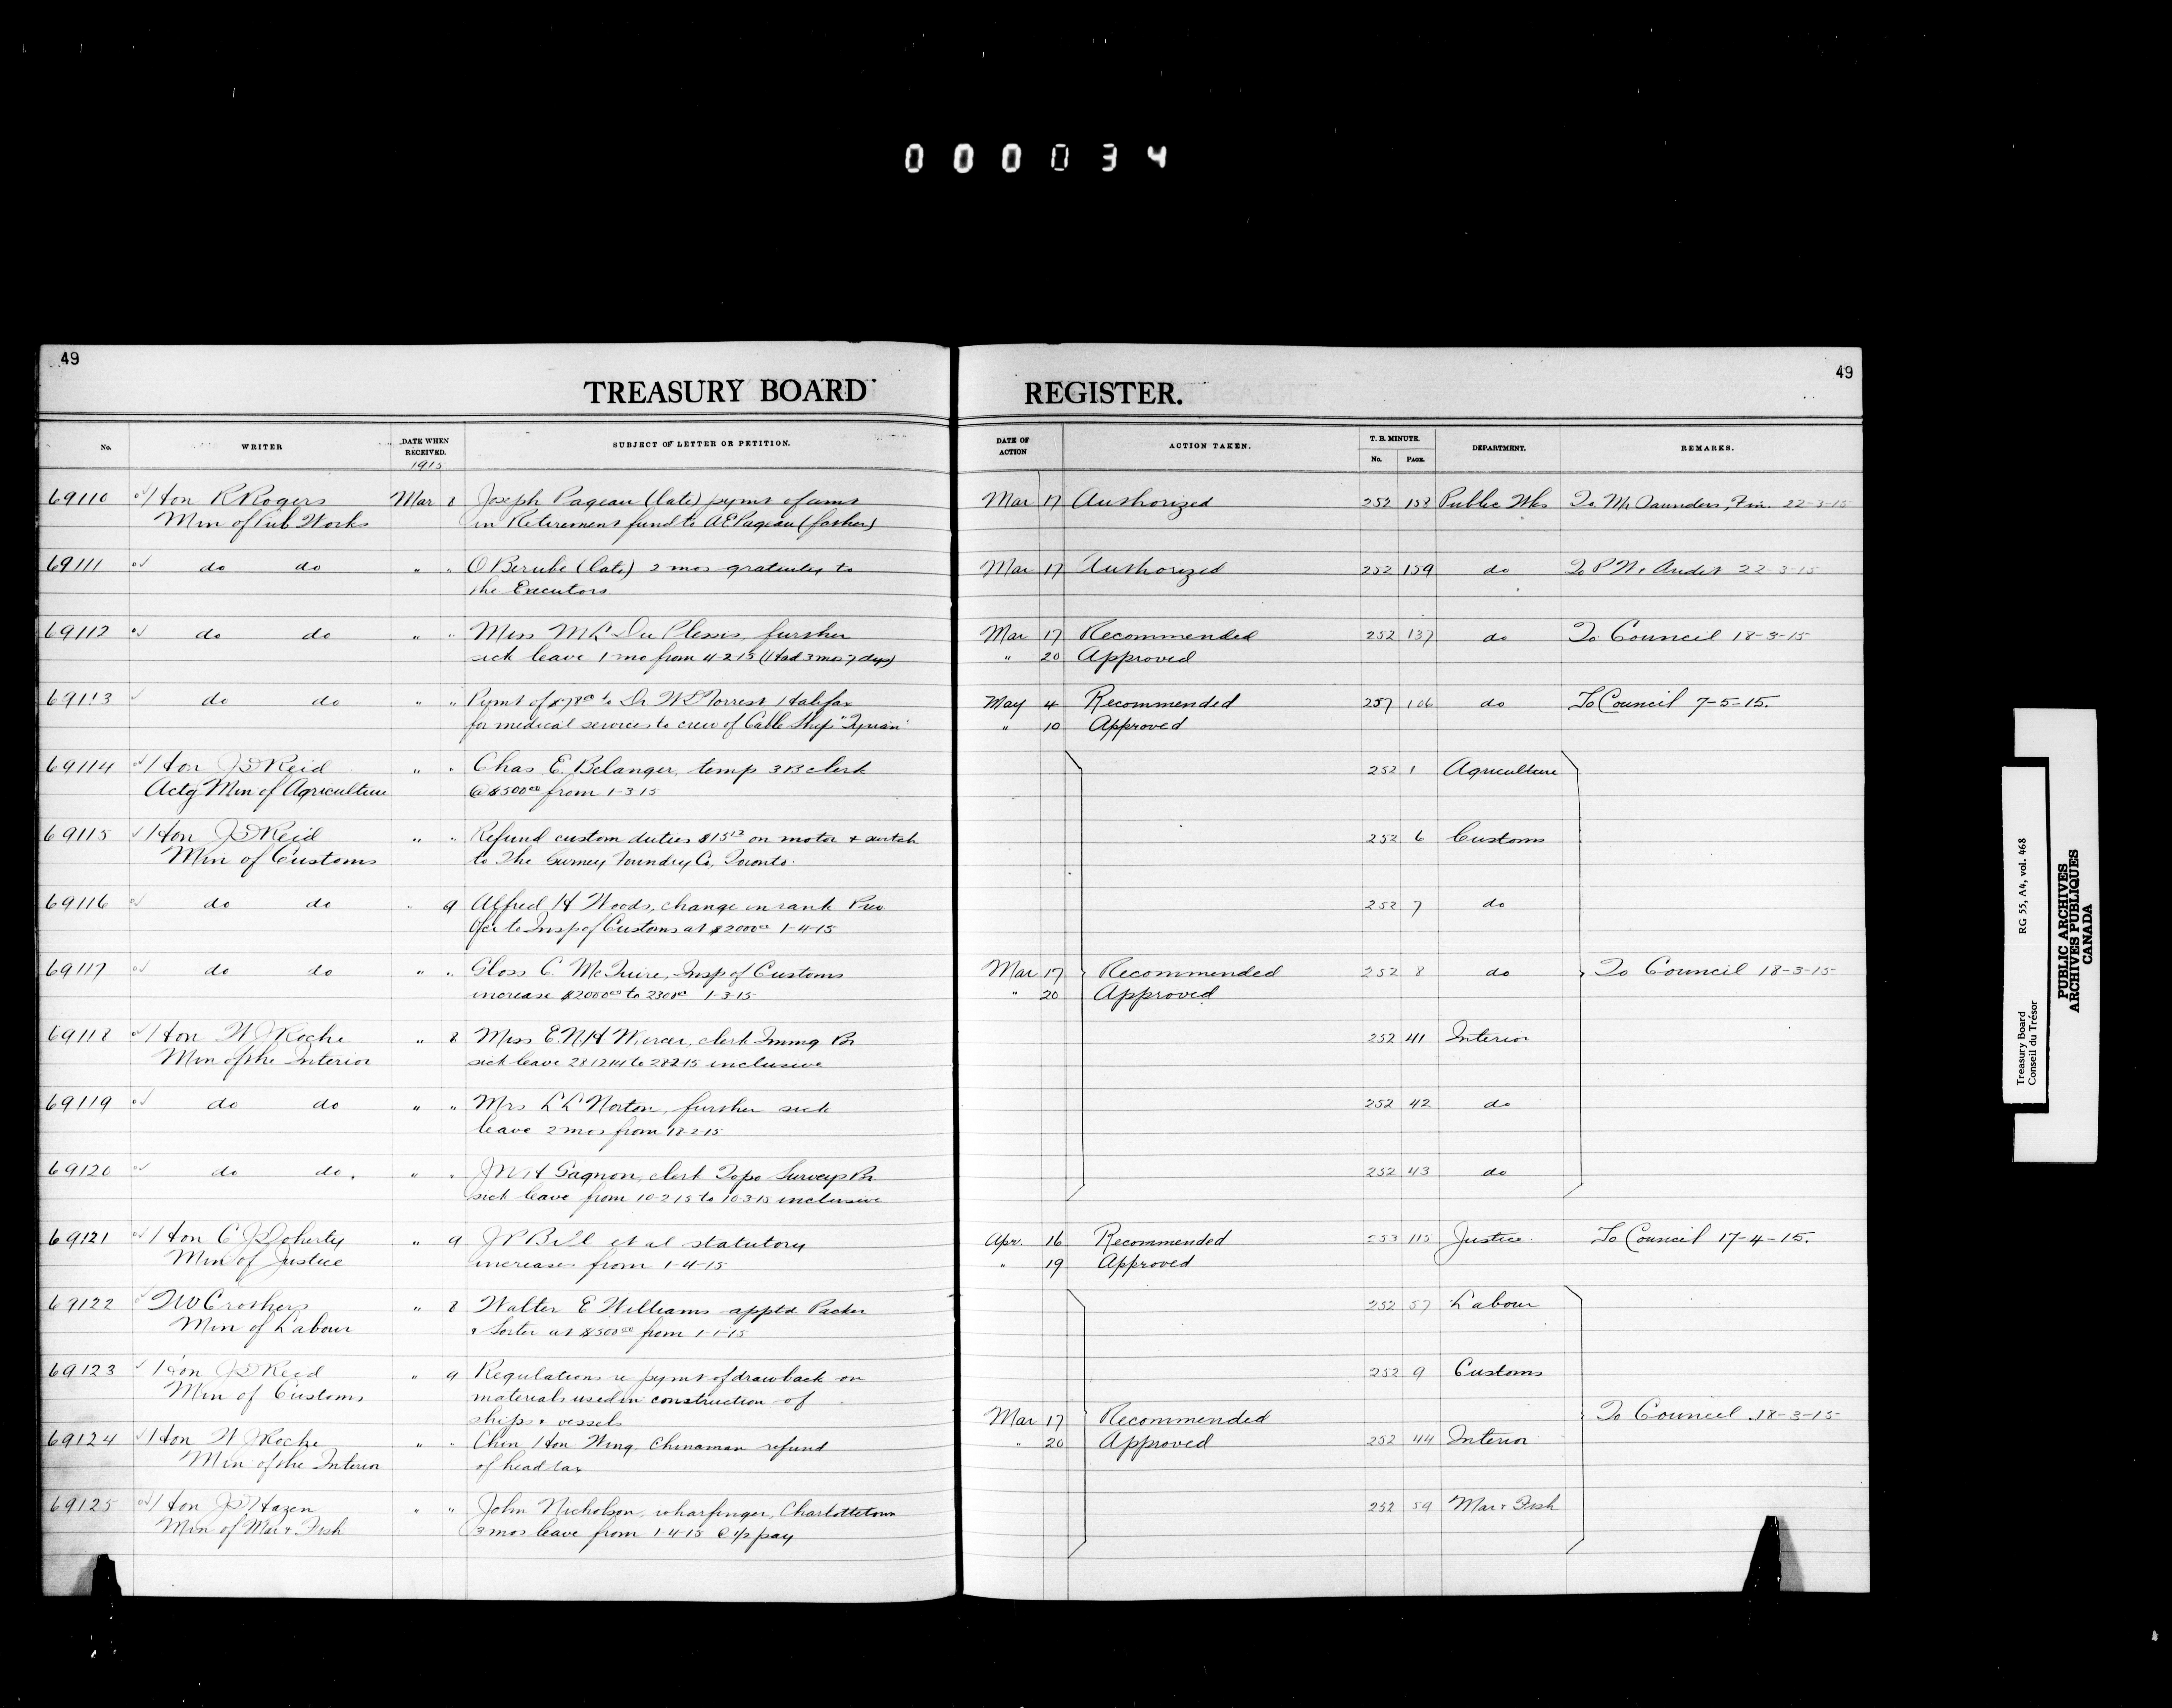 000034
49
TREASURY BOARD
No. WRITER DATE WHEN RECEIVED. SUBJECT OF LETTER OR PETITION.
1915
69110 Hon R Rogers Mar 8 Joseph Pageau (late) pymt of amt
Min of Pub Works in Retirement fund to A E Pageau (father)
69111 do do " " O Berube (late) 2 mos gratuity to
the Executors
69112 do do " " Miss M L Du Plessis, further
sick leave 1 mo from 11-2-15 (Had 3 mos 7 dys)
69113 do do " " Pymt of to Dr Halifax
for medical services to crew of Cable Ship "Tyrian"
69114 Hon J D Reid " " Chas E. Belanger, temp 3B clerk
Actg Min of Agriculture @ $500 00 from 1-3-15
69115 Hon J D Reid " " Refund custom duties on motor & switch
Min of Customs to The Gurney Foundry Co, Toronto.
69116 do do " 9 Alfred H Woods, change in rank Prev
Ofcr to Insp of Customs at $2000 00 1-4-15
69117 do do " " C. McGuire, Insp of Customs
increase $2000 00 to 2300 00 1-3-15
69118 Hon W J Roche " 8 Miss clerk Immg Br
Min of the Interior sick leave 28-12-14 to 28-2-15 inclusive
69119 do do " " Mrs L L Norton, further sick
leave 2 mos from 18-2-15
69120 do do. " " J W H Gagnon, clerk Topo Surveys Br
sick leave from 10-2-15 to 10-3-15 inclusive
69121 Hon C J Doherty " 9 J P Bill et al statutory
Min of Justice increases from 1-4-15
69122 T W Crothers " 8 Walter E Williams apptd Packer
Min of Labour & Sorter at $500 00 from 1-1-15
69123 Hon J D Reid " 9 Regulations re pymt of drawback on
Min of Customs materials used in construction of
ships & vessels
69124 Hon W J Roche " " Chin Hon Wing Chinaman refund
Min of the Interior of head tax
69125 Hon J D Hazen " " John Nicholson, wharfinger, Charlottetown
Min of Mar & Fish 3 mos leave from 1-4-15 @ 1/2 pay
49
REGISTER.
DATE OF ACTION ACTION TAKEN. T. B. MINUTE. No. PAGE. DEPARTMENT. REMARKS.
Mar 17 Authorized 252 158 Public Wks To Mr Saunders, Fin. 22-3-15
Mar 17 Authorized 252 159 do To P W. Audit 22-3-15
Mar 17 Recommended 252 137 do To Council 18-3-15
" 20 Approved
May 4 Recommended 257 106 do To Council 7-5-15.
" 10 Approved
252 1 Agriculture
252 6 Customs
252 7 do
Mar 17 Recommended 252 8 do To Council 18-3-15
" 20 Approved
252 41 Interior
252 42 do
252 43 do
Apr. 16 Recommended 253 115 Justice. To Council 17-4-15.
" 19 Approved
252 57 Labour
252 9 Customs
Mar 17 Recommended To Council 18-3-15
" 20 Approved 252 44 Interior
252 59 Mar & Fish
Treasury Board
Conseil du Trésor
RG 55, A4, vol. 468
PUBLIC ARCHIVES
ARCHIVES PUBLIQUES
CANADA